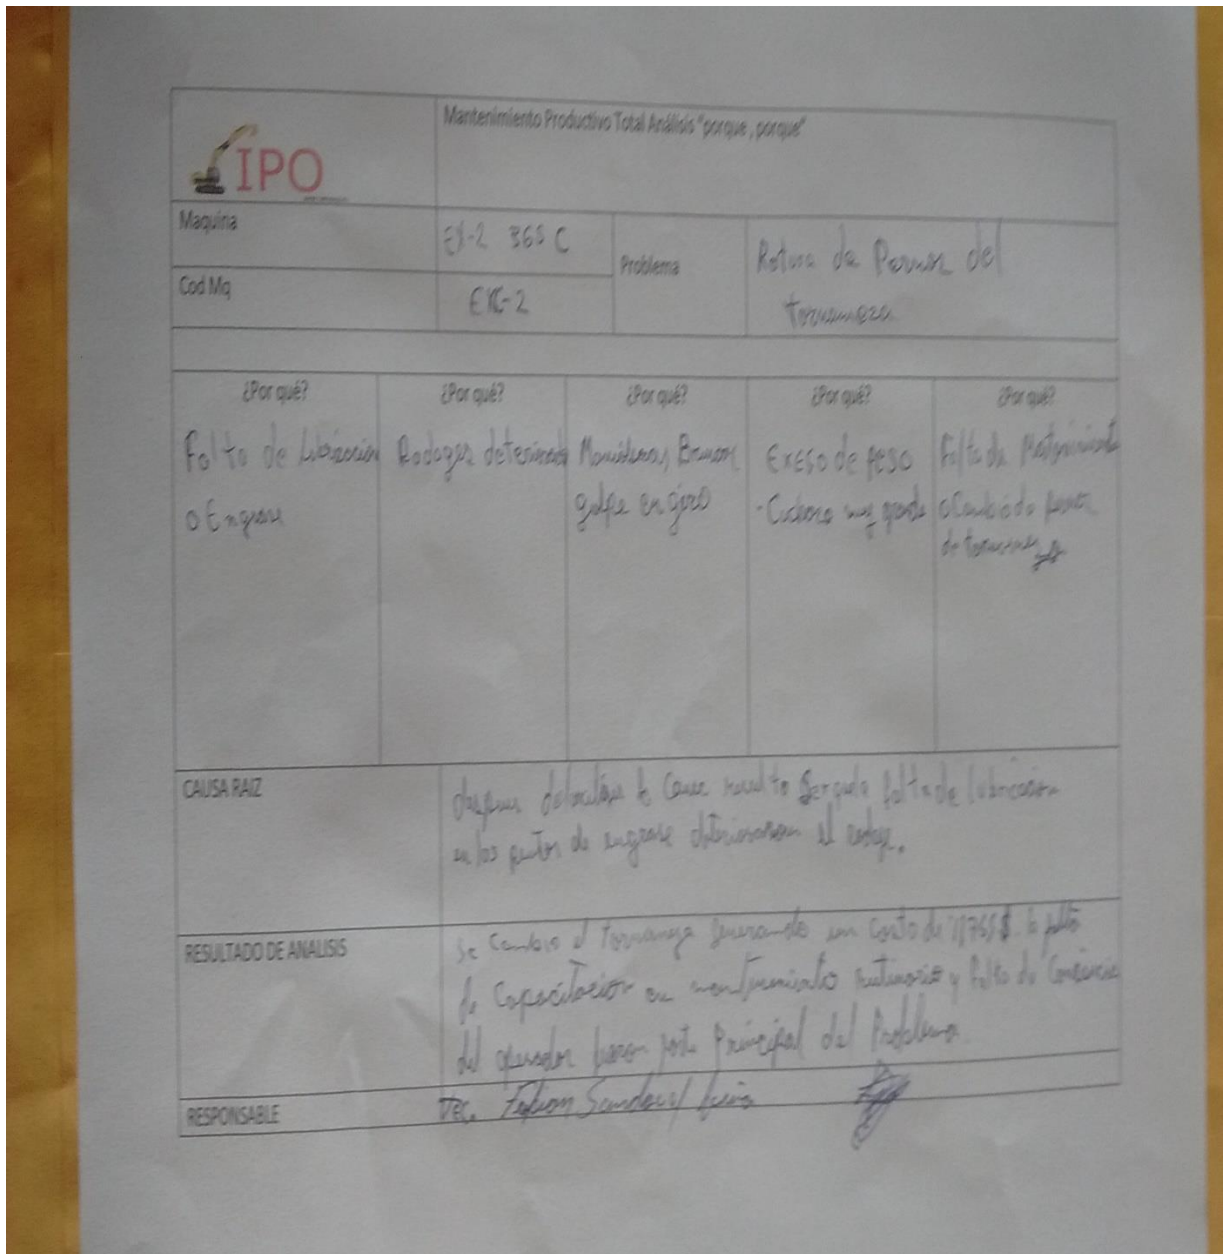 IPO
Mantenimiento Productivo Total Análisis "porque , porque"
Maquina
EX-2 365 C
Cod Mq
EXC-2
Problema
Rotura de Pernos del
tornameza
¿Por qué?
Falta de Lubricación
o Engrase
¿Por qué?
Rodages deteriorado
¿Por qué?
Maniobras Bruscas
golpe en giro
¿Por qué?
Exeso de peso
- Cuchara muy grande
¿Por qué?
Falta de Mantenimiento
o Cambio de pernos
de tornameza
CAUSA RAIZ
despues la causa resulto ser que la falta de lubricacion
en los puntos de engrase deterioraron el rodage.
RESULTADO DE ANALISIS
Se Cambio el Tornameza generando un costo de la falta
de Capacitacion en mantenimiento rutinario y falta de Conciencia
del operador fueron parte Principal del Problema.
RESPONSABLE
Tec. Fabian Sandoval